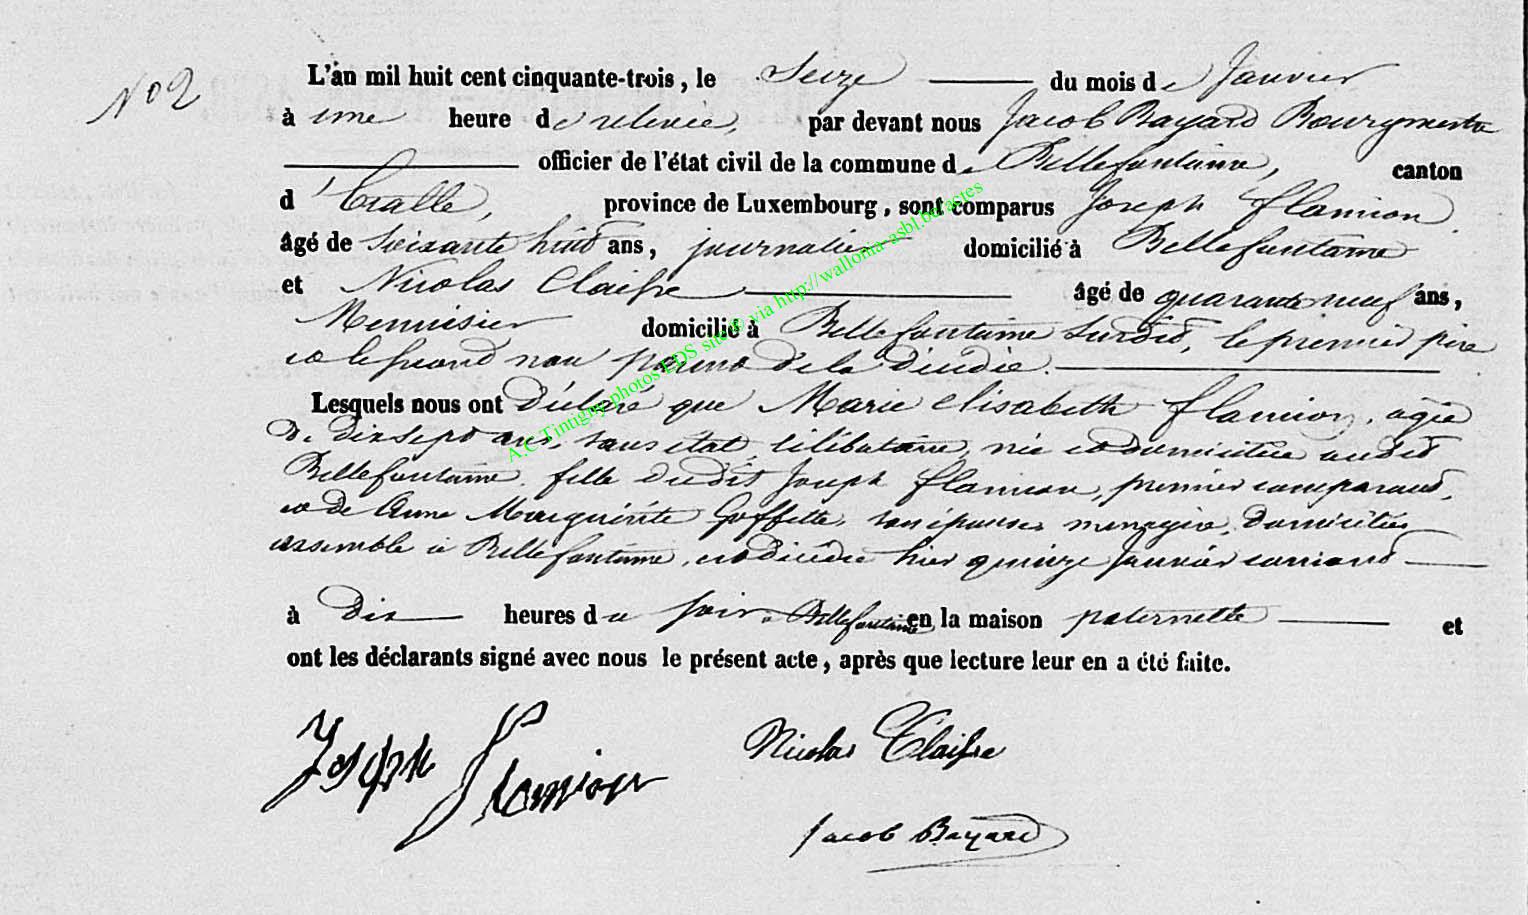 No 2
L'an mil huit cent cinquante-trois, le Seize du mois de Janvier
à une heure de relevée, par devant nous Jacob Bayard Bourgmestre
officier de l'état civil de la commune de Bellefontaine, canton
d'Etalle, province de Luxembourg, sont comparus Joseph flamion
âgé de soixante huit ans, journalier domicilié à Bellefontaine
et Nicolas Claisse âgé de quarante neuf ans,
Menuisier domicilié à Bellefontaine susdit, le premier père
et le second non parent de la décédée.
Lesquels nous ont déclaré que Marie élisabeth flamion, agée
de dix sept ans, sans état, célibataire, née et domiciliée audit
Bellefontaine, fille dudit Joseph flamion, premier comparant,
et de Anne Marguerite Goffette, son épouse, menagère, domiciliés
ensemble à Bellefontaine, est décédée hier quinze Janvier courant
à dix heures du soir à Bellefontaine en la maison paternelle et
ont les déclarants signé avec nous le présent acte, après que lecture leur en a été faite.
Joseph Flamion
Nicolas Claisse
Jacob Bayard
A.C Tintigny photos EDS site© via http://wallonia-asbl.be/actes